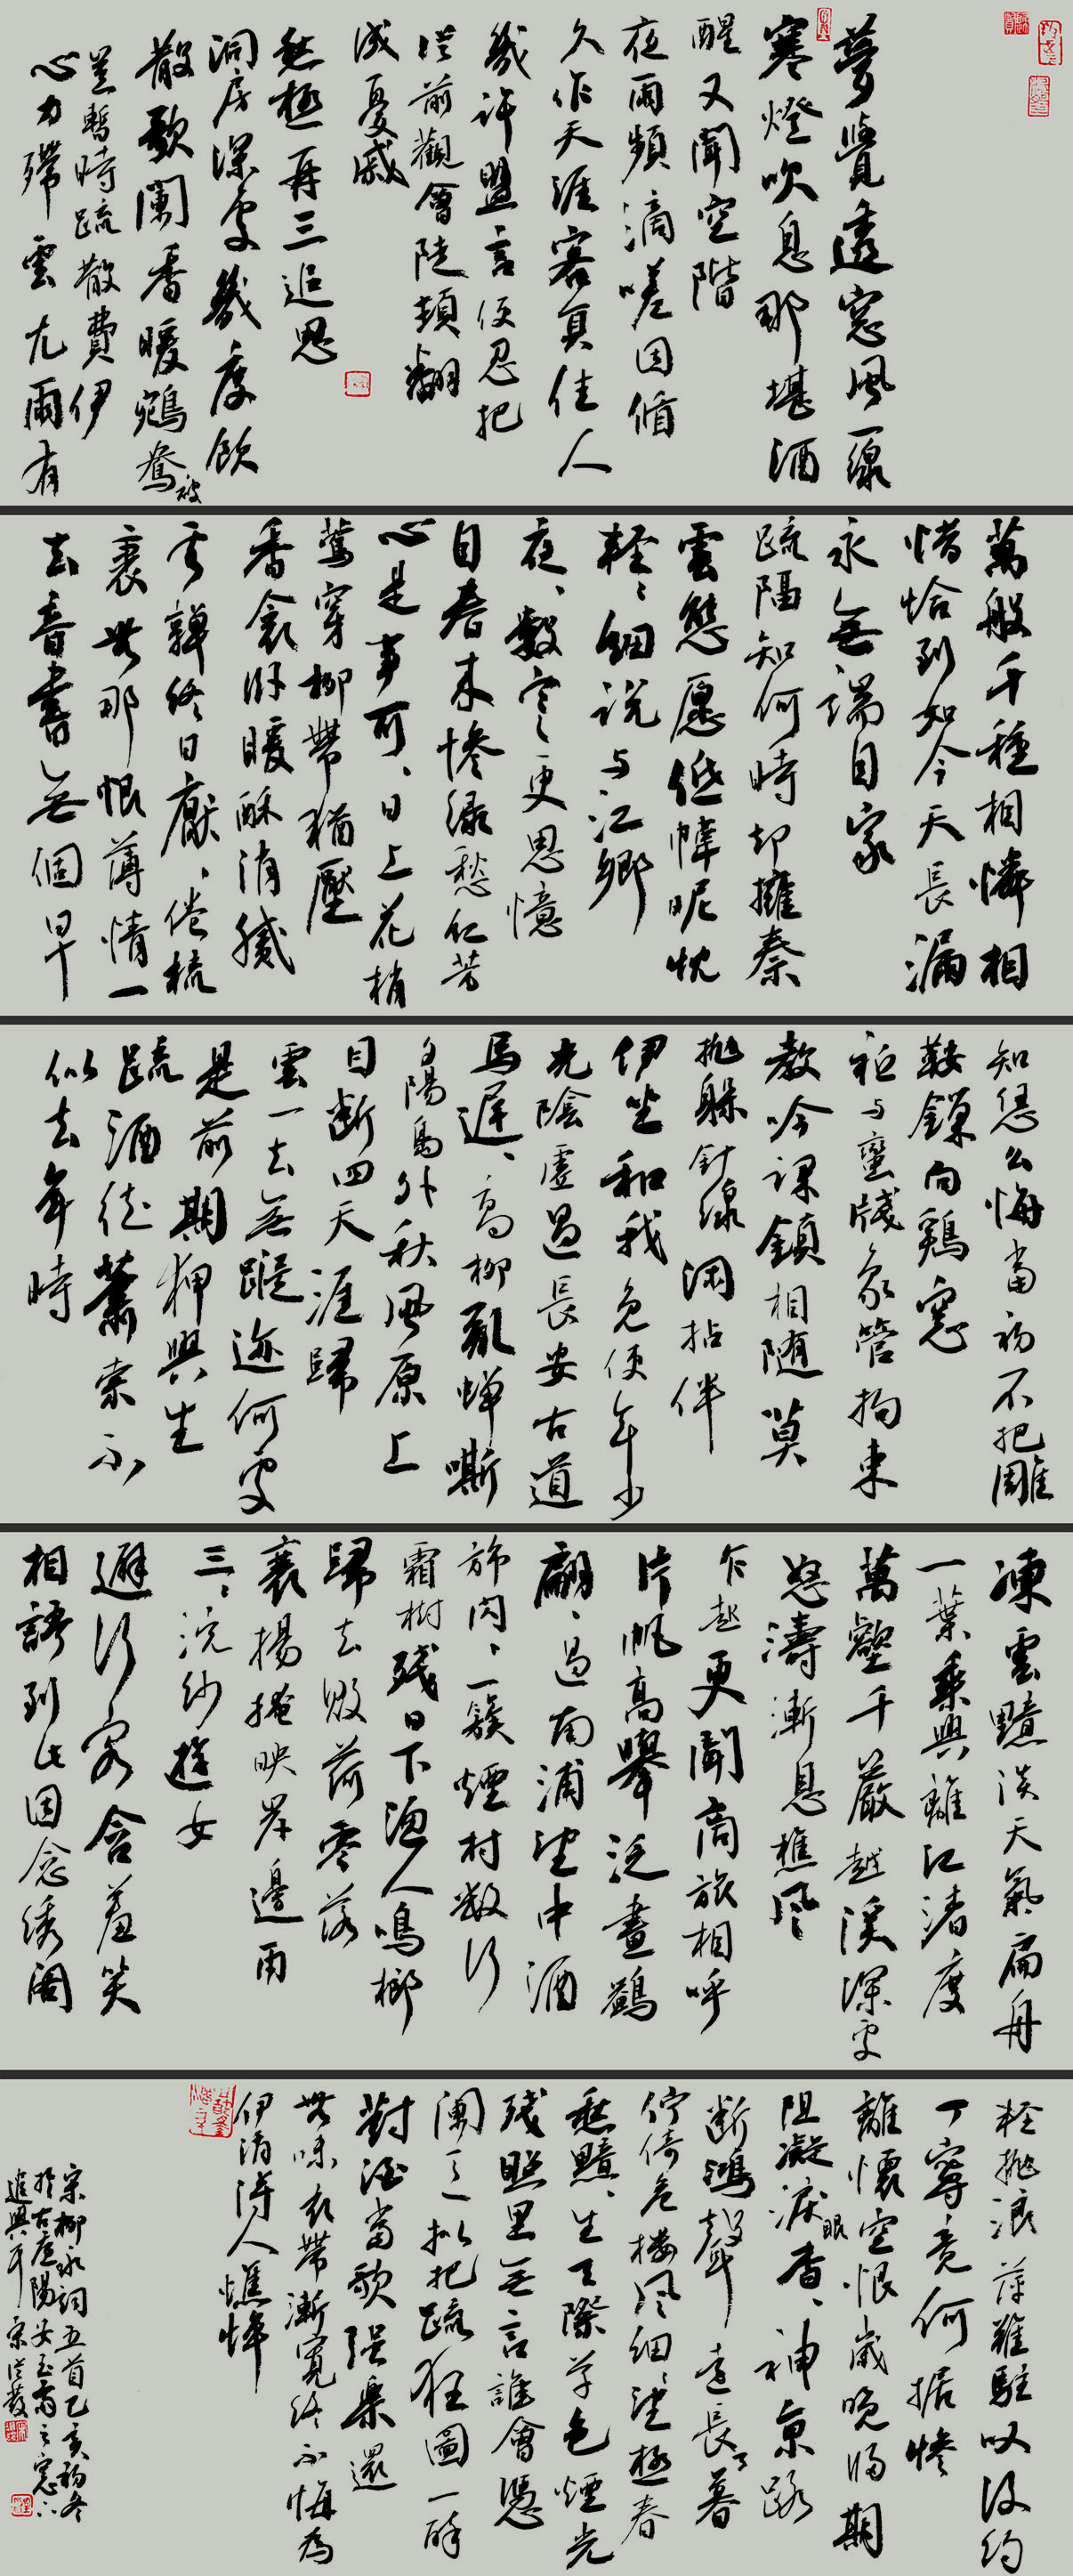 夢覺透窗風一線
寒燈吹息那堪酒
醒又聞空階
夜雨頻滴嗟因循
久作天涯客負佳人
幾許盟言便忍把
從前歡會陡頓翻
成憂戚
愁極再三追思
洞房深處幾度飲
散歌闌香暖鴛鴦被
豈暫時疏散費伊
心力殢雲尤雨有
萬般千種相憐相
惜恰到如今天長漏
永無端自家
疏隔知何時卻擁秦
雲態愿低幃昵枕
輕輕細說與江鄉
夜夜數寒更思憶
自春來慘綠愁紅芳
心是事可可日上花梢
鶯穿柳帶猶壓
香衾臥暖酥消膩
雲嚲終日厭厭倦梳
裹無那恨薄情一
去音書無個早
知恁么悔當初不把雕
鞍鎖向鷄窗
衹與蠻牋象管拘束
教吟課鎮相隨莫
拋躲針線閑拈伴
伊坐和我免使年少
光陰虛過長安古道
馬遲遲高柳亂蟬嘶
夕陽鳥外秋風原上
目斷四天涯歸
雲一去無蹤迹何處
是前期狎興生
疏酒徒蕭索不
似去年時
凍雲黯淡天氣扁舟
一葉乘興離江渚度
萬壑千巖越溪深處
怒濤漸息樵風
乍起更聞商旅相呼
片帆高舉泛畫鷁
翩翩過南浦望中酒
旆閃閃一簇煙村數行
霜樹殘日下漁人鳴榔
歸去敗荷零落
衰楊掩映岸邊兩兩
三三浣紗遊女
避行客含羞笑
相語到此因念綉閣
輕拋浪萍難駐叹後約
丁寧竟何據慘
離懷空恨歲晚歸期
阻凝淚眼杳杳神京路
斷鴻聲遠長天暮
佇倚危樓風細細望極春
愁黯黯生天際草色煙光
殘照里無言誰會憑
闌意擬把疏狂圖一醉
對酒當歌強樂還
無味衣帶漸寬終不悔為
伊消得人憔悴
宋柳永詞五首乙亥初冬
於古廬陽安玉齋之窗下
遣興耳